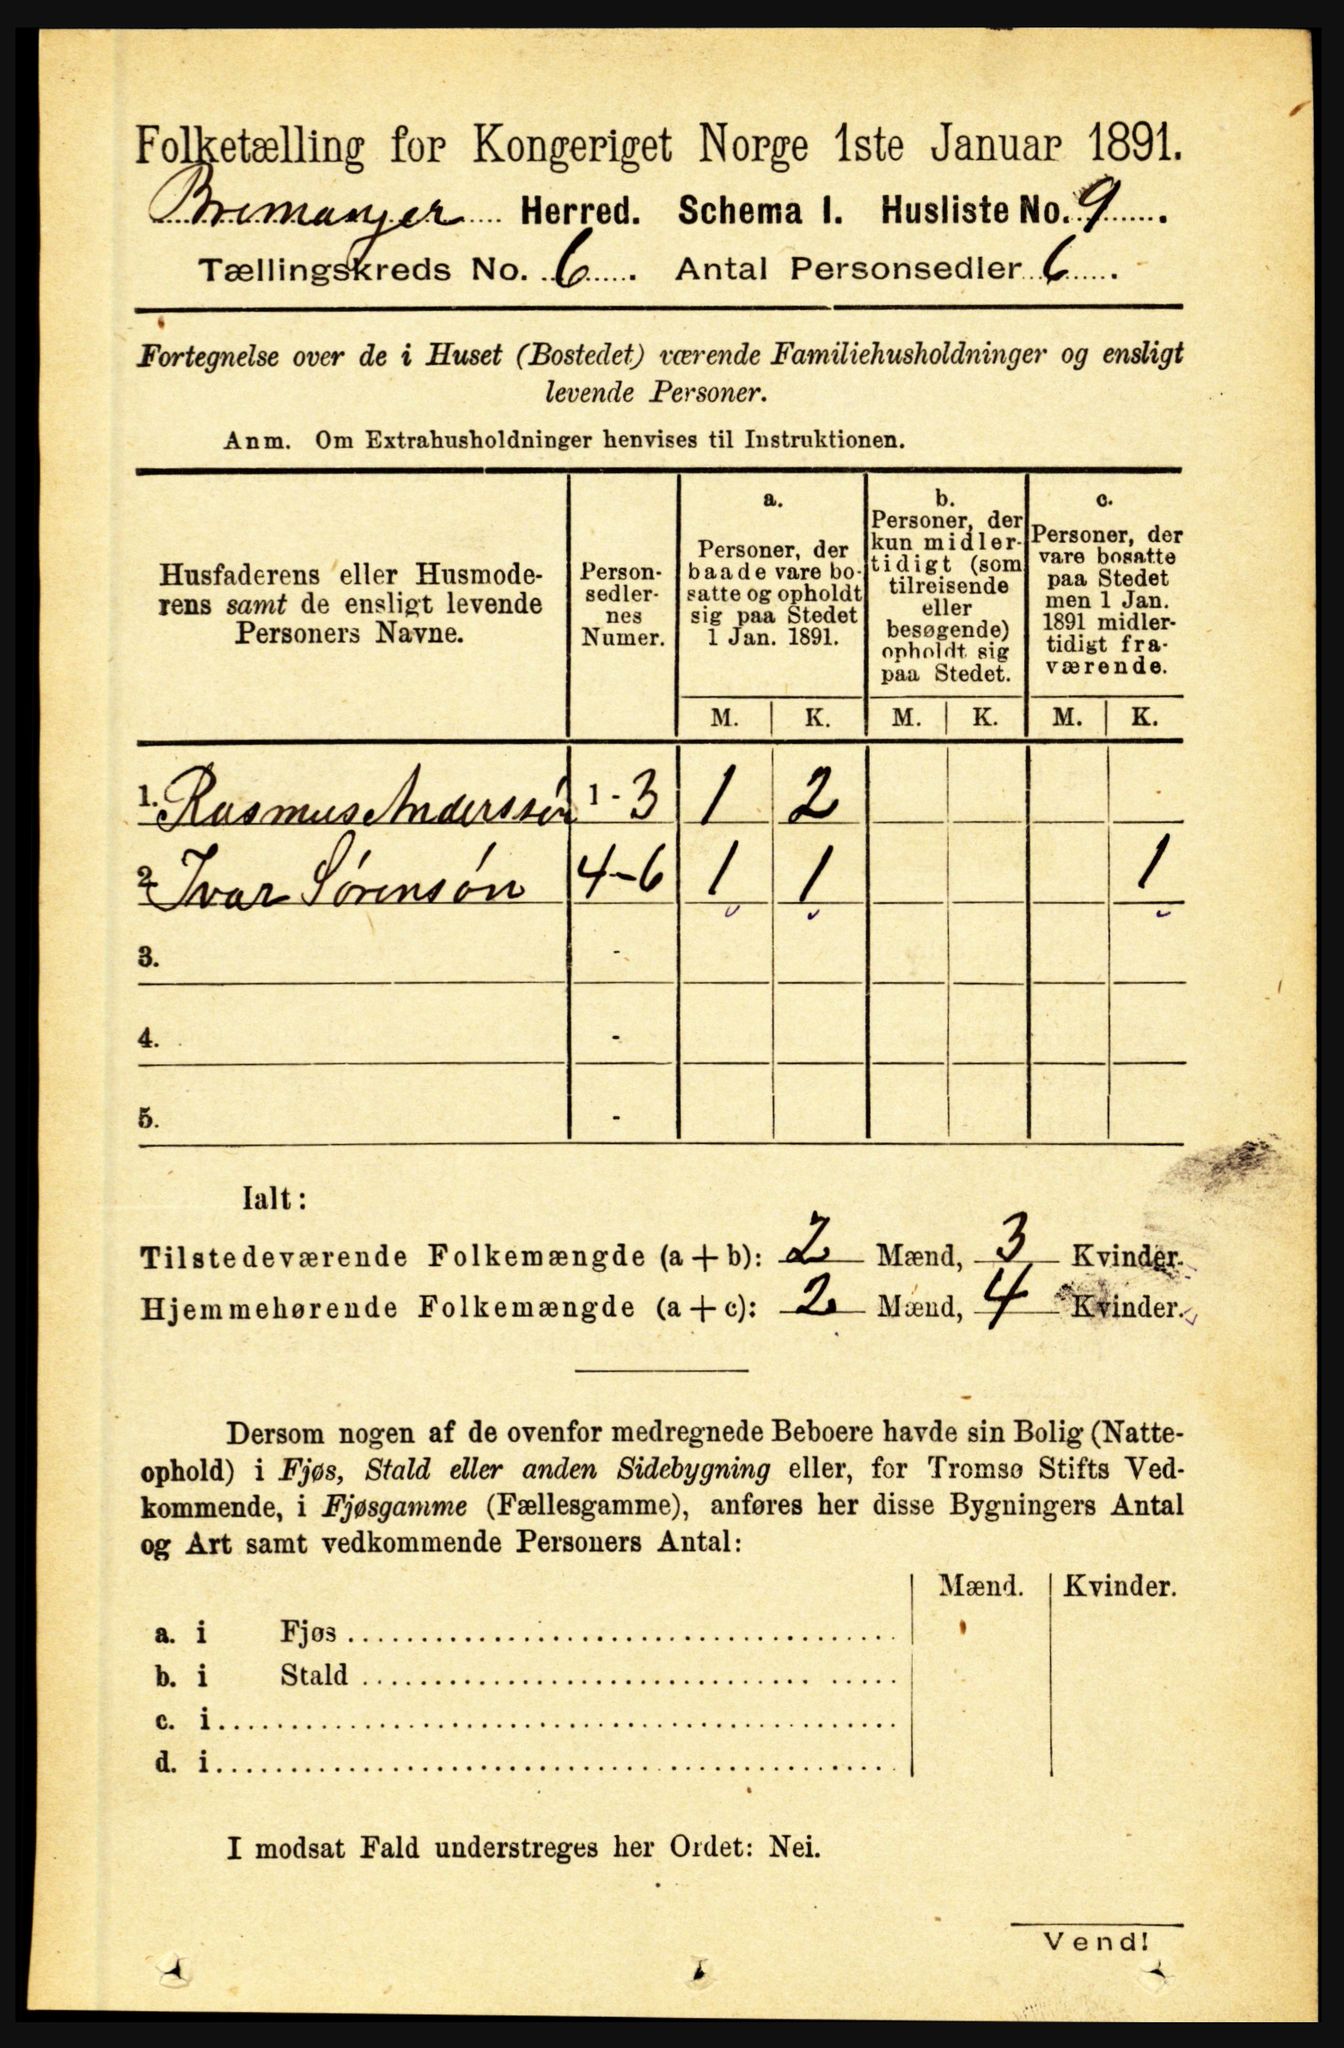 Folketælling for Kongeriget Norge 1ste Januar 1891.
Bremanger Herred. Schema I. Husliste No. 9.
Tællingskreds No. 6. Antal Personsedler 6.
Fortegnelse over de i Huset (Bostedet) værende Familiehusholdninger og ensligt
levende Personer.
Anm. Om Extrahusholdninger henvises til Instruktionen.
Husfaderens eller Husmode-
rens samt de ensligt levende
Personers Navne.
Person-
sedler-
nes
Numer.
a.
Personer, der
baade vare bo-
satte og opholdt
sig paa Stedet
1 Jan. 1891.
b.
Personer, der
kun midler-
tidigt (som
tilreisende
eller
besøgende)
opholdt sig
paa Stedet.
c.
Personer, der
vare bosatte
paa Stedet
men 1 Jan.
1891 midler-
tidigt fra-
værende.
M. K. M. K. M. K.
1. Rasmus Anderssøn 1 - 3 1 2
2. Ivar Sørensøn 4-6 1 1 1
3. -
4. -
5. -
Ialt:
Tilstedeværende Folkemængde (a + b): 2 Mænd, 3 Kvinder.
Hjemmehørende Folkemængde (a + c): 2 Mænd, 4 Kvinder.
Dersom nogen af de ovenfor medregnede Beboere havde sin Bolig (Natte-
ophold) i Fjøs, Stald eller anden Sidebygning eller, for Tromsø Stifts Ved-
kommende, i Fjøsgamme (Fællesgamme), anføres her disse Bygningers Antal
og Art samt vedkommende Personers Antal:
Mænd. Kvinder.
a. i Fjøs
b. i Stald
c. i
d. i
I modsat Fald understreges her Ordet: Nei.
Vend!